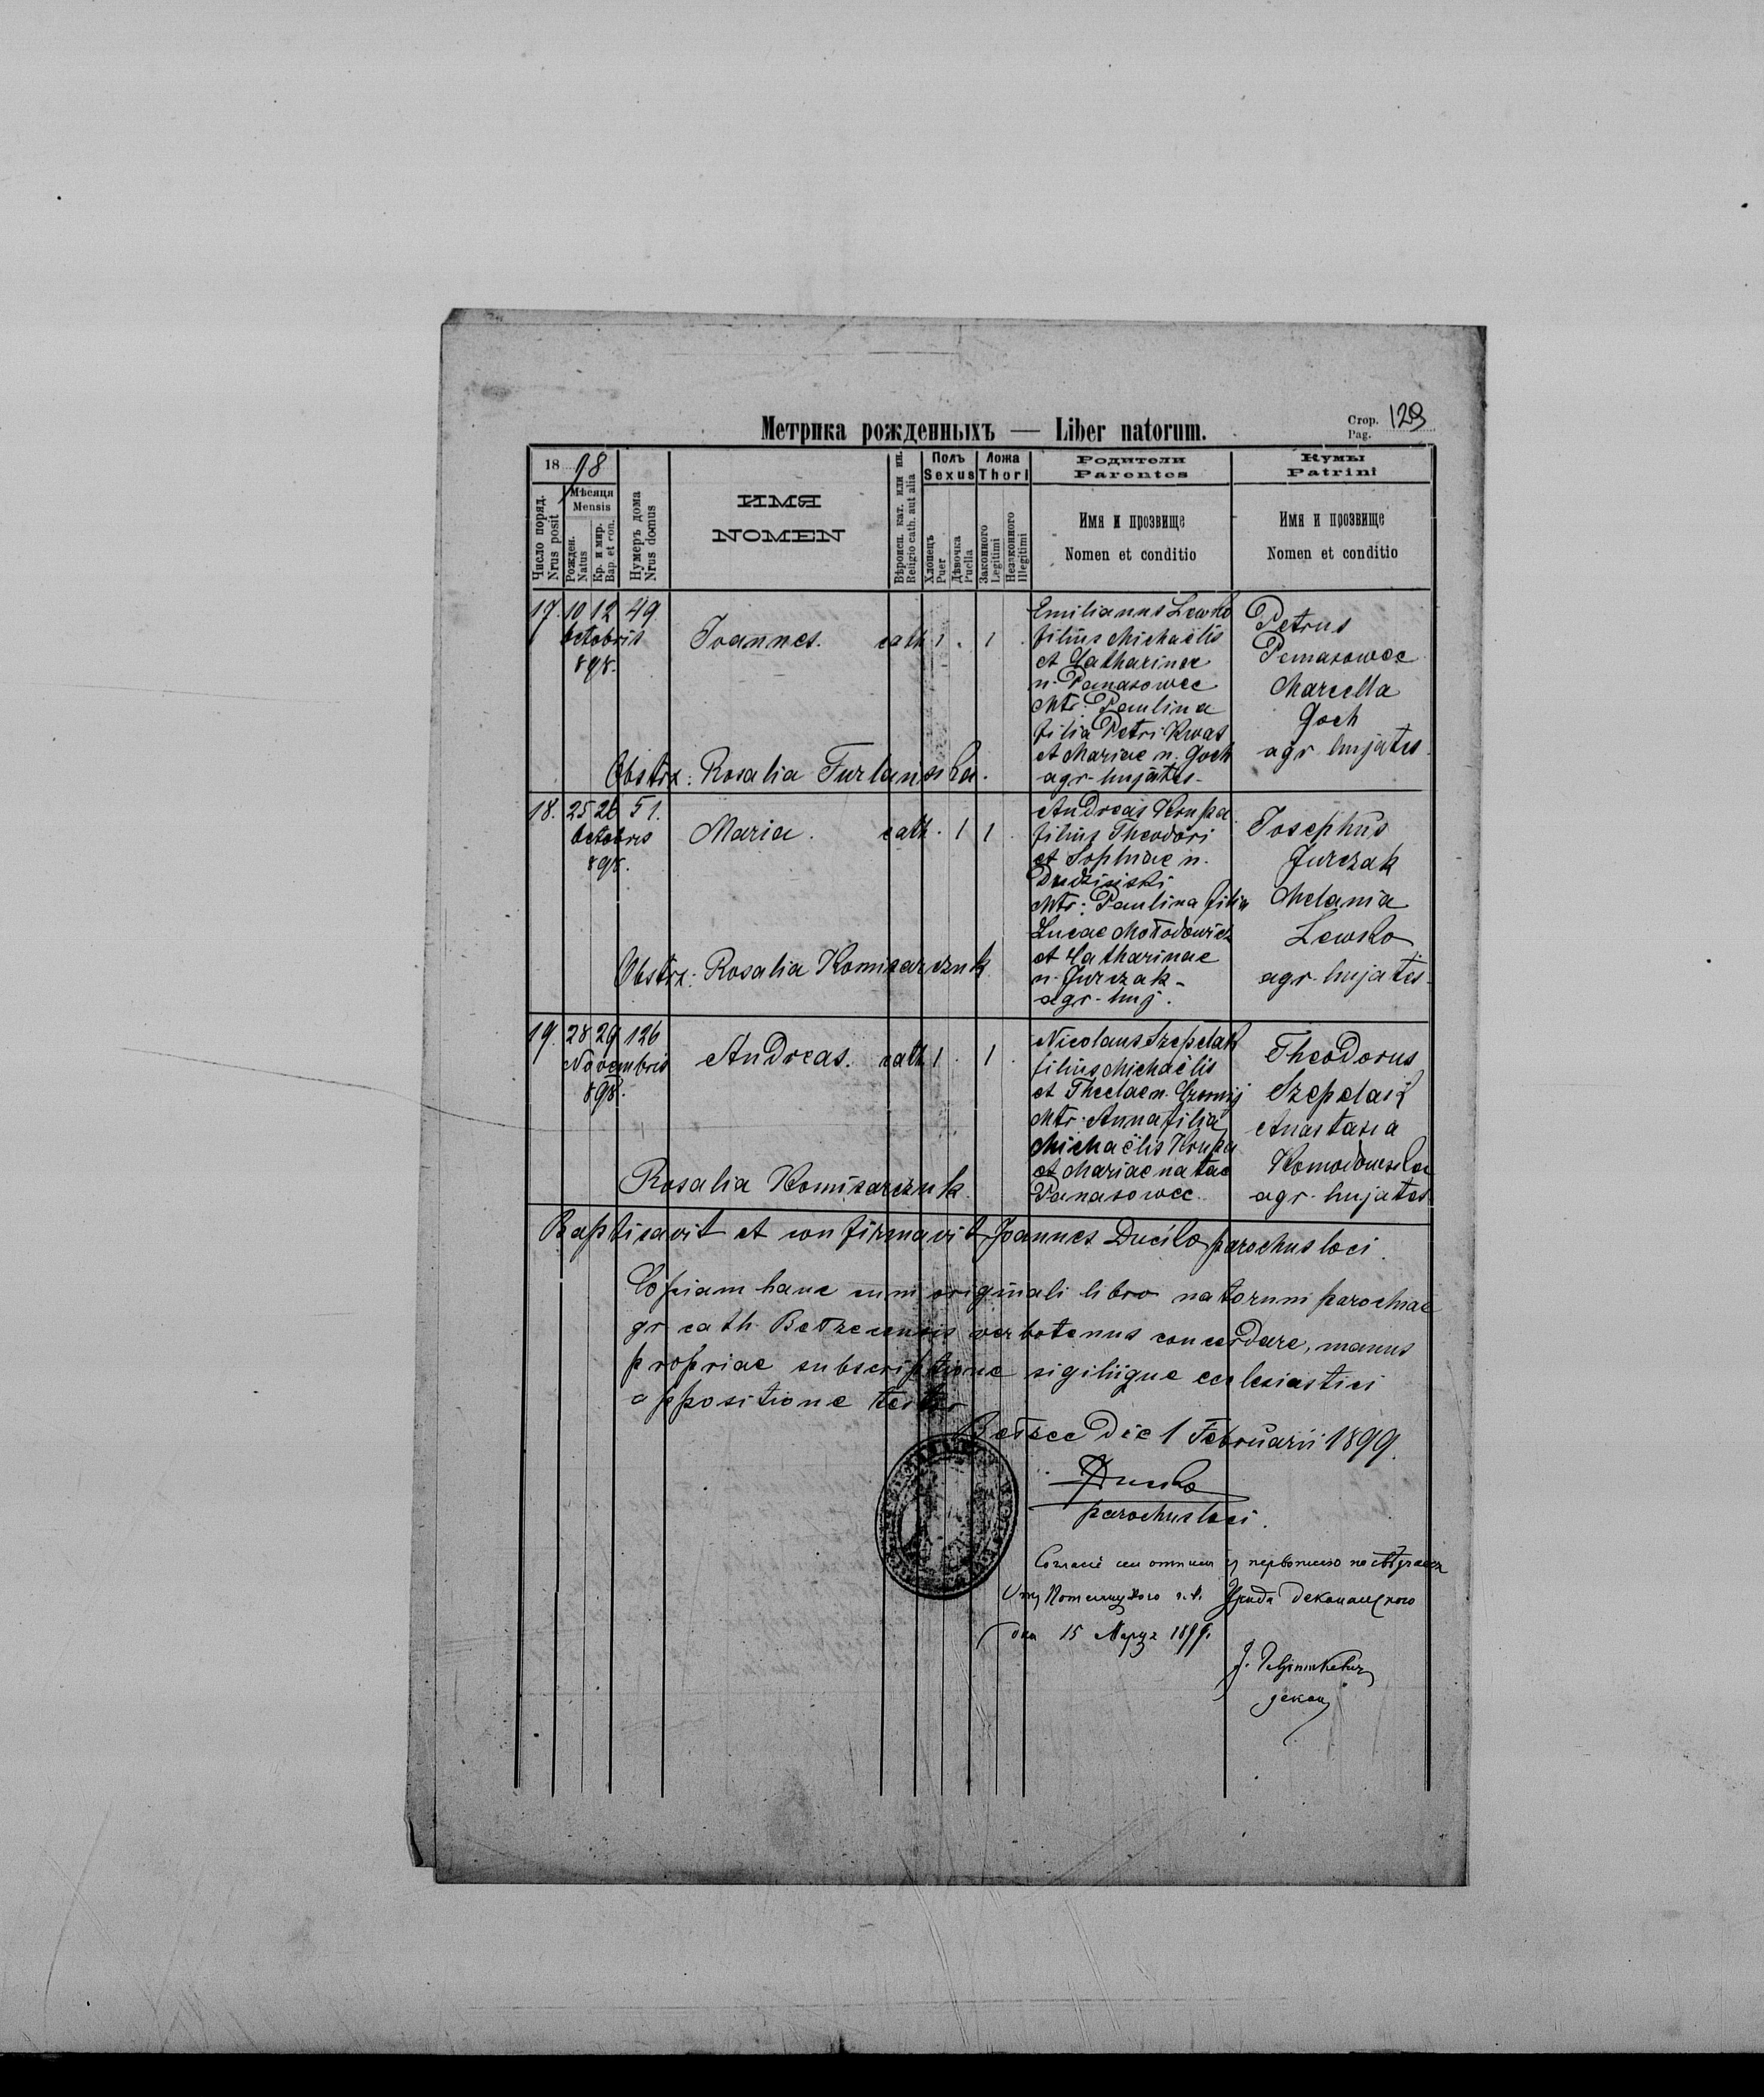 Метрика рожденныхъ — Liber natorum.
Стор. 129
Pag.
18 98
Число поряд.
Nrus posit
Мѣсяця
Mensis
Рожден.
Natus
Кр. и мир.
Bap. et con.
Нумеръ дома
Nrus domus
ИМЯ
NOMEN
Вѣроисп. кат. или ин.
Religio cath. aut alia
Полъ
Sexus
Хлопецъ
Puer
Дѣвочка
Puella
Ложа
Thori
Законного
Legitimi
Незаконного
Illegitimi
Родители
Parentes
Имя и прозвище
Nomen et conditio
Кумы
Patrini
Имя и прозвище
Nomen et conditio
17. 10 12 49
Octobris
898.
Joannes. cath 1 . 1 .
Emilianus Lewko
filius Michaëlis
et Catharinae
n. Panasowec
Mtr: Paulina
filia Petri Kwas
et Mariae n. Goch
agr. hujates.
Petrus
Panasowec
Marcella
Goch
agr. hujates.
Obstrx: Rosalia Furlanska.
18. 25 26 51.
Octobris
898.
Maria. cath. 1 1
Andreas Krupa
filius Theodori
et Sophiae n.
Mtr: Paulina filia
Lucae Mołodowicz
et Catharinae
n. Jurczak
agr. huj.
Josephus
Jurczak
Melania
Lewko
agr. hujates.
Obstrx: Rosalia Komisarczuk
19. 28 29 126
Novembris
898.
Andreas. cath 1 . 1 .
Nicolaus Szepelak
filius Michaëlis
et Theclae n.
Mtr. Anna filia
Michaëlis Krupa
et Mariae natae
Panasowec.
Theodorus
Szepelak
Anastasia
agr. hujates
Rosalia Komisarczuk.
Baptisavit et confirmavit Joannes Ducilo parochus loci.
Copiam hanc cum originali libro natorum parochiae
gr. cath. Bełzecensis verbotenus concordare, manus
propriae subscriptione sigiliique ecclesiastici
appositione testor
Bełzec die 1 Februarii 1899.
parochus loci.
деканального
дня 15 Марта 1899.
декан